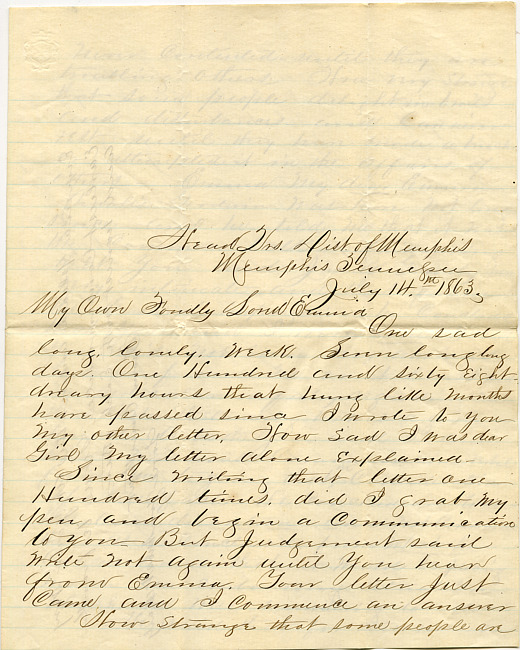 Head Qrs. Dist of Memphis
Memphis Tennessee
July 14.th 1863,
My Own Fondly Loved Emma
One sad
long, lonely. Week. Seven long long
days. One Hundred and sixty Eight-
dreary hours that hung like months
have passed since I wrote to you
My other letter. How sad I was dear
Girl My letter alone Explained
Since Writing that letter one
Hundred times, did I grab My
pen, and begin a Communication
to you But Judgement said
Write Not again until You hear
from Emma. Your letter Just
Came and I Commence an answer
How Strange that some people are